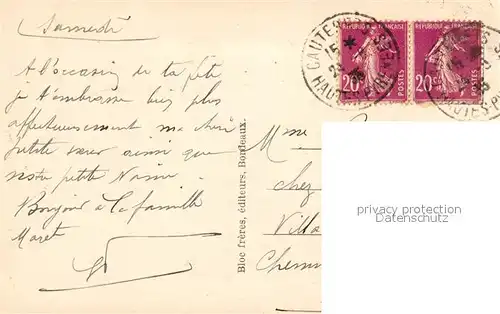 Samedi
A l'occasion de ta fête
je t'embrasse bien plus
affectueusement ma chère
petite sœur ainsi que
notre petite
Bonjour à la famille
Maret
Bloc frères, éditeurs, Bordeaux.
CAUTERETS
HAUTES-PYRÉNÉES
REPUBLIQUE FRANÇAISE
20c
POSTES
REPUBLIQUE FRANÇAISE
20c
POSTES
Mme
chez
Villa
Chemin
privacy protection
Datenschutz